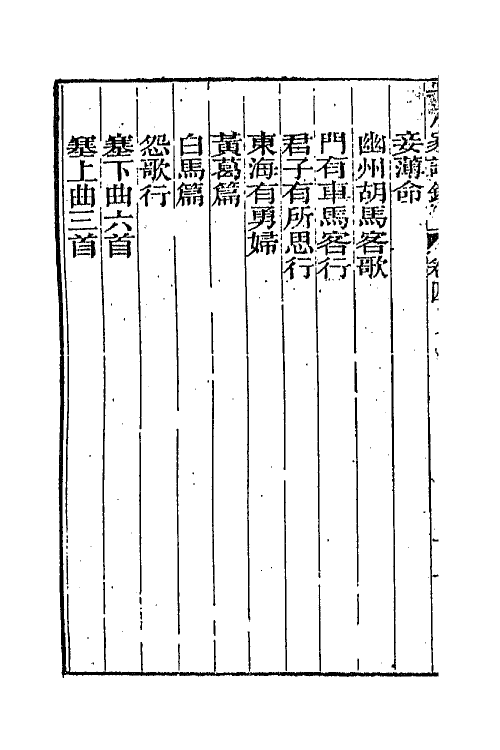 妾薄命
幽州胡馬客歌
門有車馬客行
君子有所思行
東海有勇婦
黃葛篇
白馬篇
怨歌行
塞下曲六首
塞上曲三首